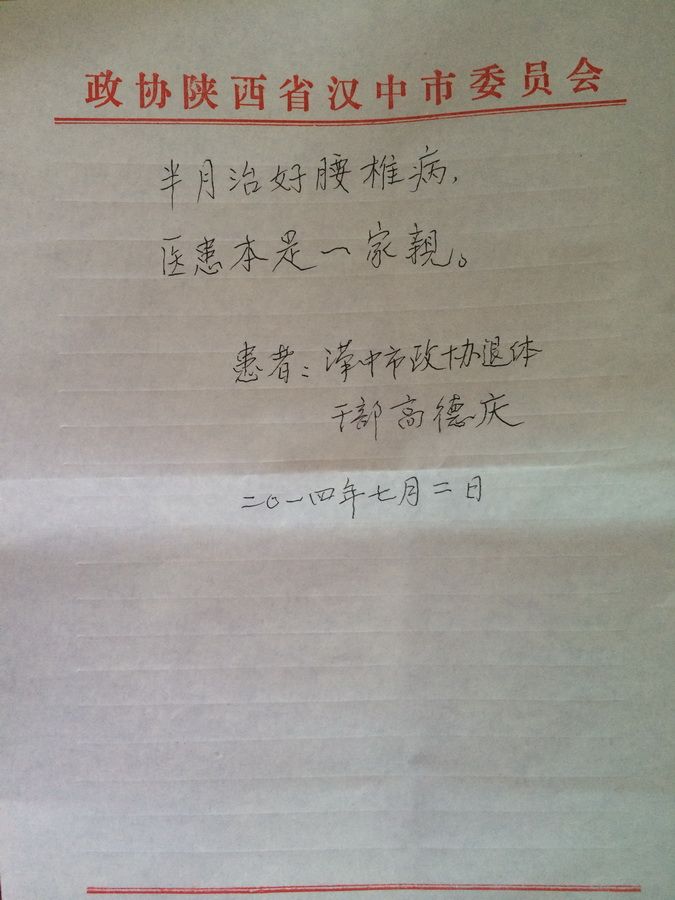 政协陕西省汉中市委员会
半月治好腰椎病，
医患本是一家親。
患者：漢中市政协退休
干部高德庆
二〇一四年七月二日